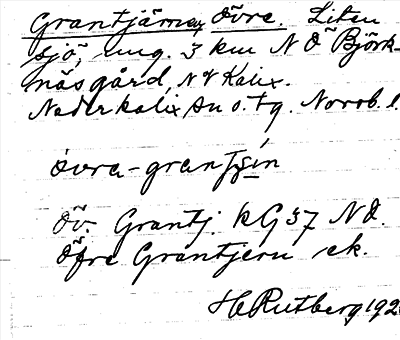 Grantjärnen, Övre. Liten
sjö, ung. 3 km NÖ Björk-
näsgård, NV Kalix.
Nederkalix sn o. tg. Norrb. l.
övra-grantjsín
Öv. Grantj. kG 37 NÖ.
Öfre Grantjern ek.
H Rutberg 192